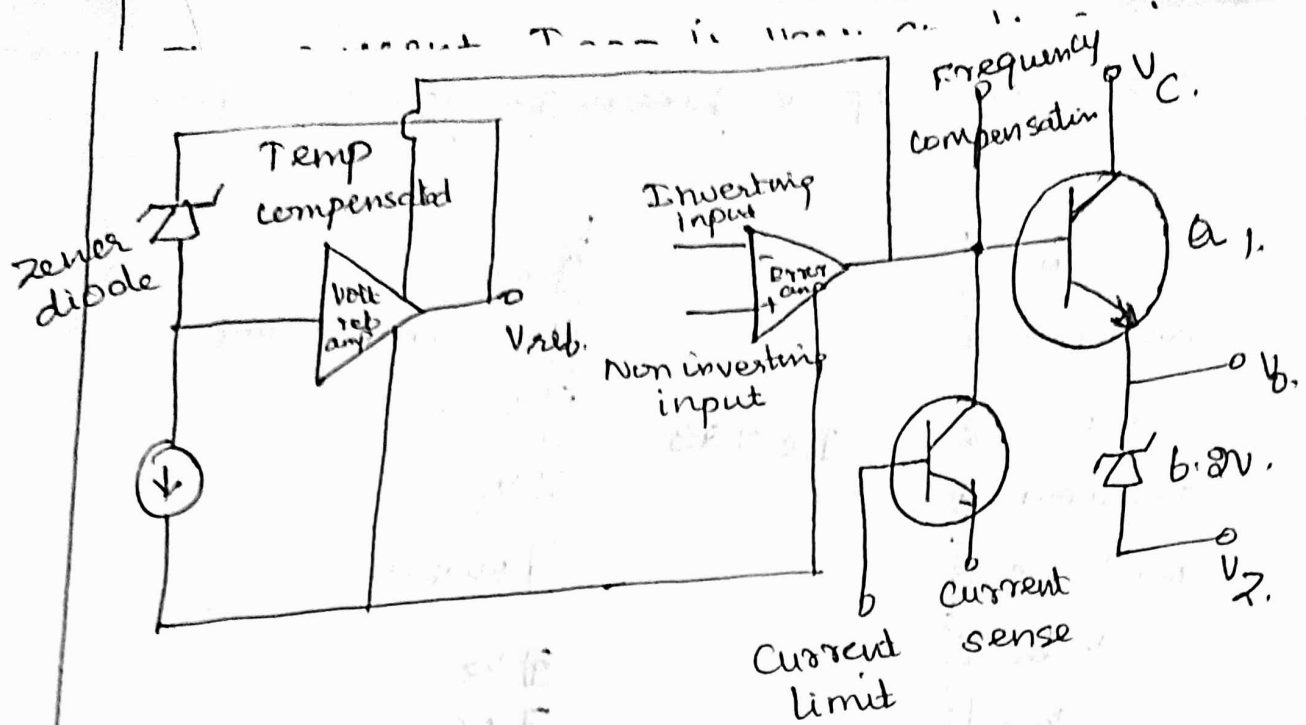 Frequency
compensatin
VC.
Temp
compensated
Zener
diode
Volt
ref
amp
Vref.
Inverting
input
-
Error
amp
+
Non inverting
input
Q1.
V0.
6.2V.
VZ.
Current
sense
Current
limit